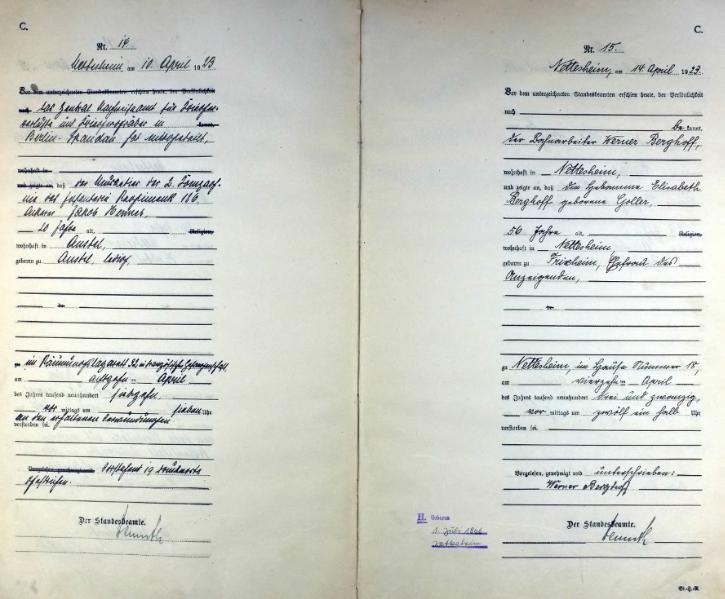 C.
Nr. 14
Nettesheim am 10 April 1923
Vor dem unterzeichneten Standesbeamten erschien heute, der Persönlichkeit
nach das Zentral Nachweisamt für Krieger-
verluste und Kriegergräber in kannt,
Berlin-Spandau hat mitgeteilt,
wohnhaft in
und zeigte an, daß der Musketier der 2. Kompag-
nie des Infanterie Regiments 186
Ackerer Jakob
20 Jahre alt, Religion,
wohnhaft in Anstel
geboren zu Anstel ledig,
zu
zu im 32 in französische Gefangenschaft,
am achtzehn ten April
des Jahres tausend neunhundert siebzehn
mittags um sieben Uhr
an den erhaltenen Verwundungen
verstorben sei.
Vorgelesen, genehmigt und Vorstehend 19 Druckworte
gestrichen.
Der Standesbeamte.
C.
Nr. 15.
Nettesheim, am 14 April 1923.
Vor dem unterzeichneten Standesbeamten erschien heute, der Persönlichkeit
nach
be kannt,
der Bahnarbeiter Werner Berghoff,
wohnhaft in Nettesheim,
und zeigte an, daß die Elisabeth
Berghoff geborene Goller,
56 Jahre alt, Religion,
wohnhaft in Nettesheim
geboren zu Frixheim, Ehefrau des
Anzeigenden,
zu
zu Nettesheim, im Hause Nummer 18,
am vierzehn ten April
des Jahres tausend neunhundert drei und zwanzig,
vor mittags um zwölf ein halb Uhr
verstorben sei.
Vorgelesen, genehmigt und unterschrieben:
Werner Berghoff
H. Geboren
1. Juli 1866
Nettesheim
Der Standesbeamte.